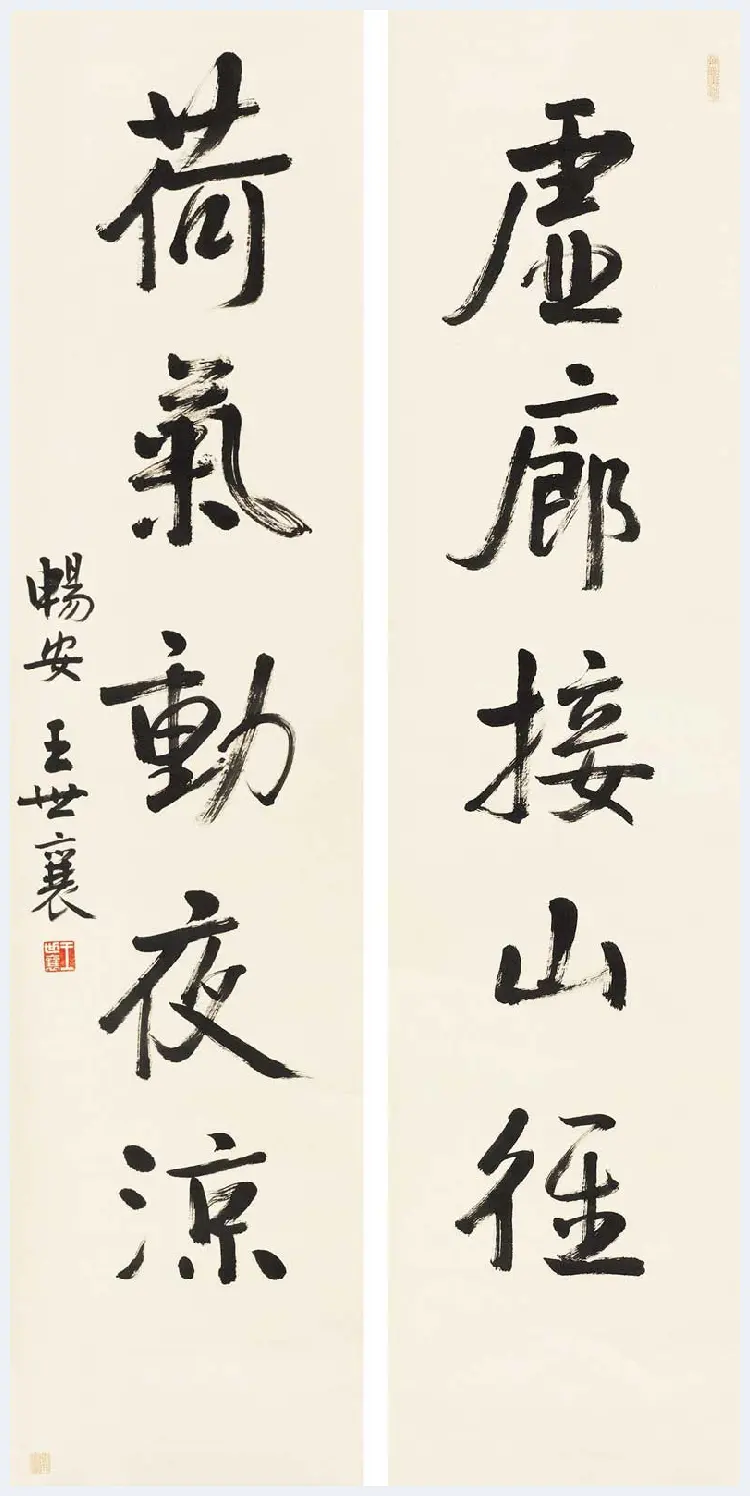 虛廊接山徑
荷氣動夜涼
暢安 王世襄
王世襄